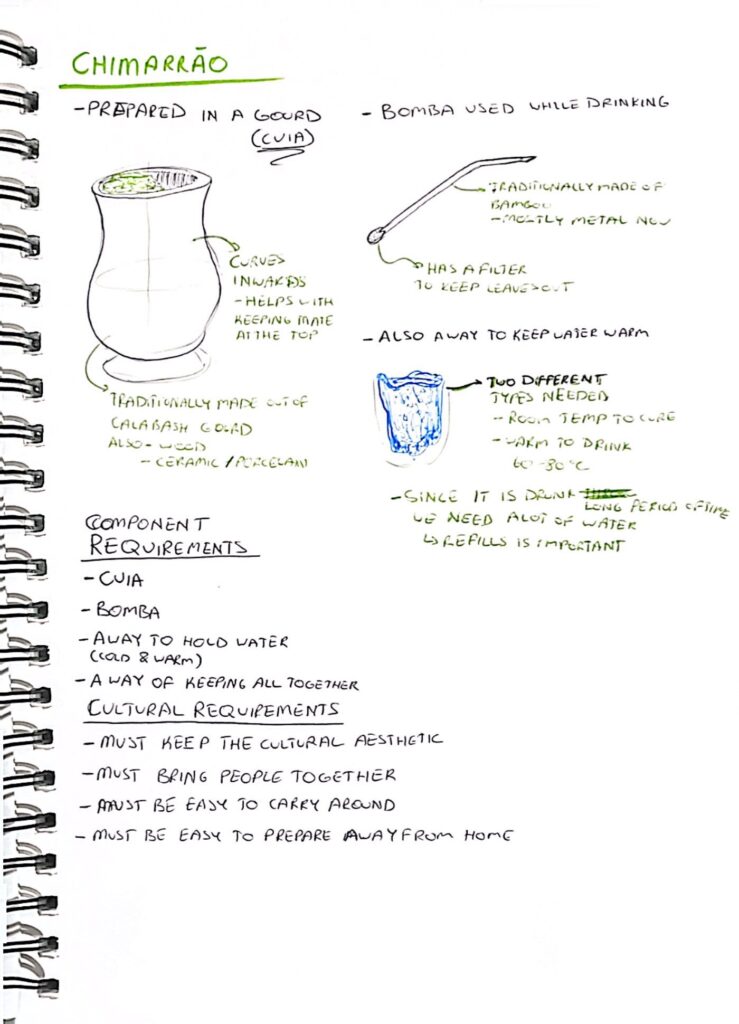 CHIMARRÃO
- PREPARED IN A GOURD
(CUIA)
CURVES
INWARDS
- HELPS WITH
KEEPING MATE
AT THE TOP
TRADITIONALLY MADE OUT OF
CALABASH GOURD
ALSO - WOOD
- CERAMIC / PORCELAIN
- BOMBA USED WHILE DRINKING
TRADITIONALLY MADE OF
BAMBOU
- MOSTLY METAL NOW
HAS A FILTER
TO KEEP LEAVES OUT
- ALSO A WAY TO KEEP WATER WARM
TWO DIFFERENT
TYPES NEEDED
- ROOM TEMP TO CURE
- WARM TO DRINK
60-80°C
- SINCE IT IS DRUNK LONG PERIOD OF TIME
WE NEED A LOT OF WATER
↳ REFILLS IS IMPORTANT
COMPONENT
REQUIREMENTS
- CUIA
- BOMBA
- A WAY TO HOLD WATER
(COLD & WARM)
- A WAY OF KEEPING ALL TOGETHER
CULTURAL REQUIREMENTS
- MUST KEEP THE CULTURAL AESTHETIC
- MUST BRING PEOPLE TOGETHER
- MUST BE EASY TO CARRY AROUND
- MUST BE EASY TO PREPARE AWAY FROM HOME